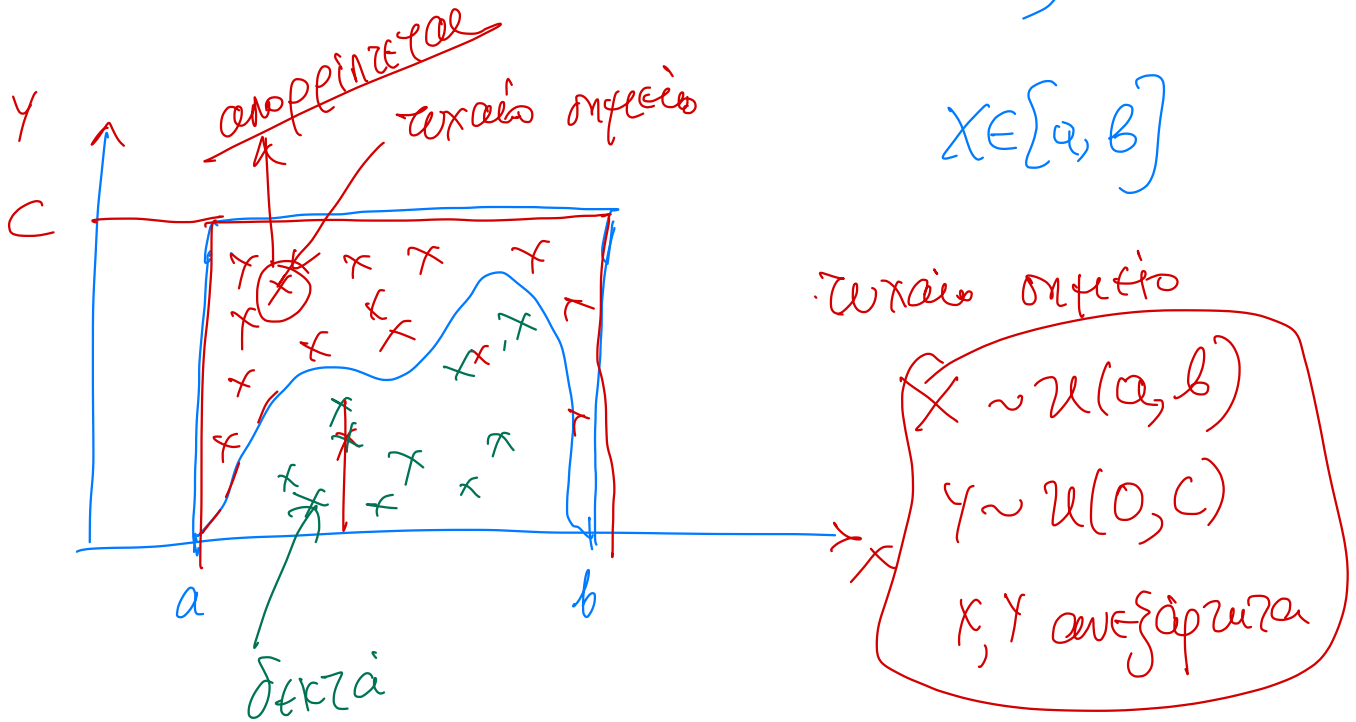 απορρίπτεται
τυχαίο σημείο
Y
C
X∈[a, b]
τυχαίο σημείο
X ~ U(a, b)
Y ~ U(0, C)
X, Y ανεξάρτητα
X
a
b
δεκτά